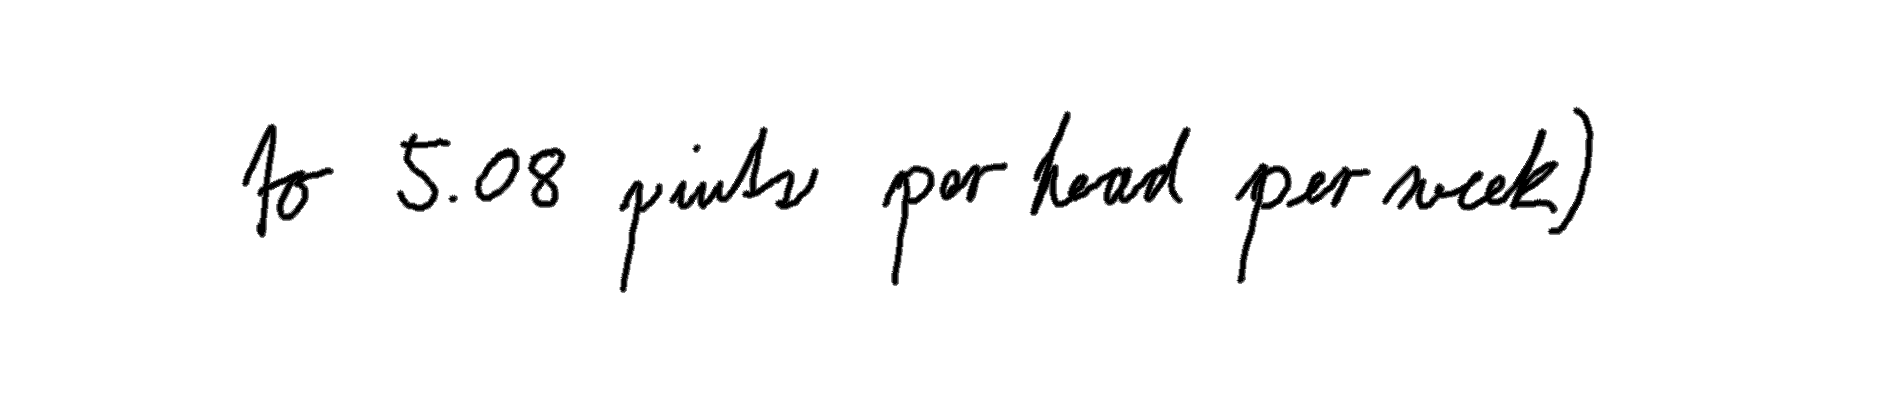 to 5.08 pints per head per week)